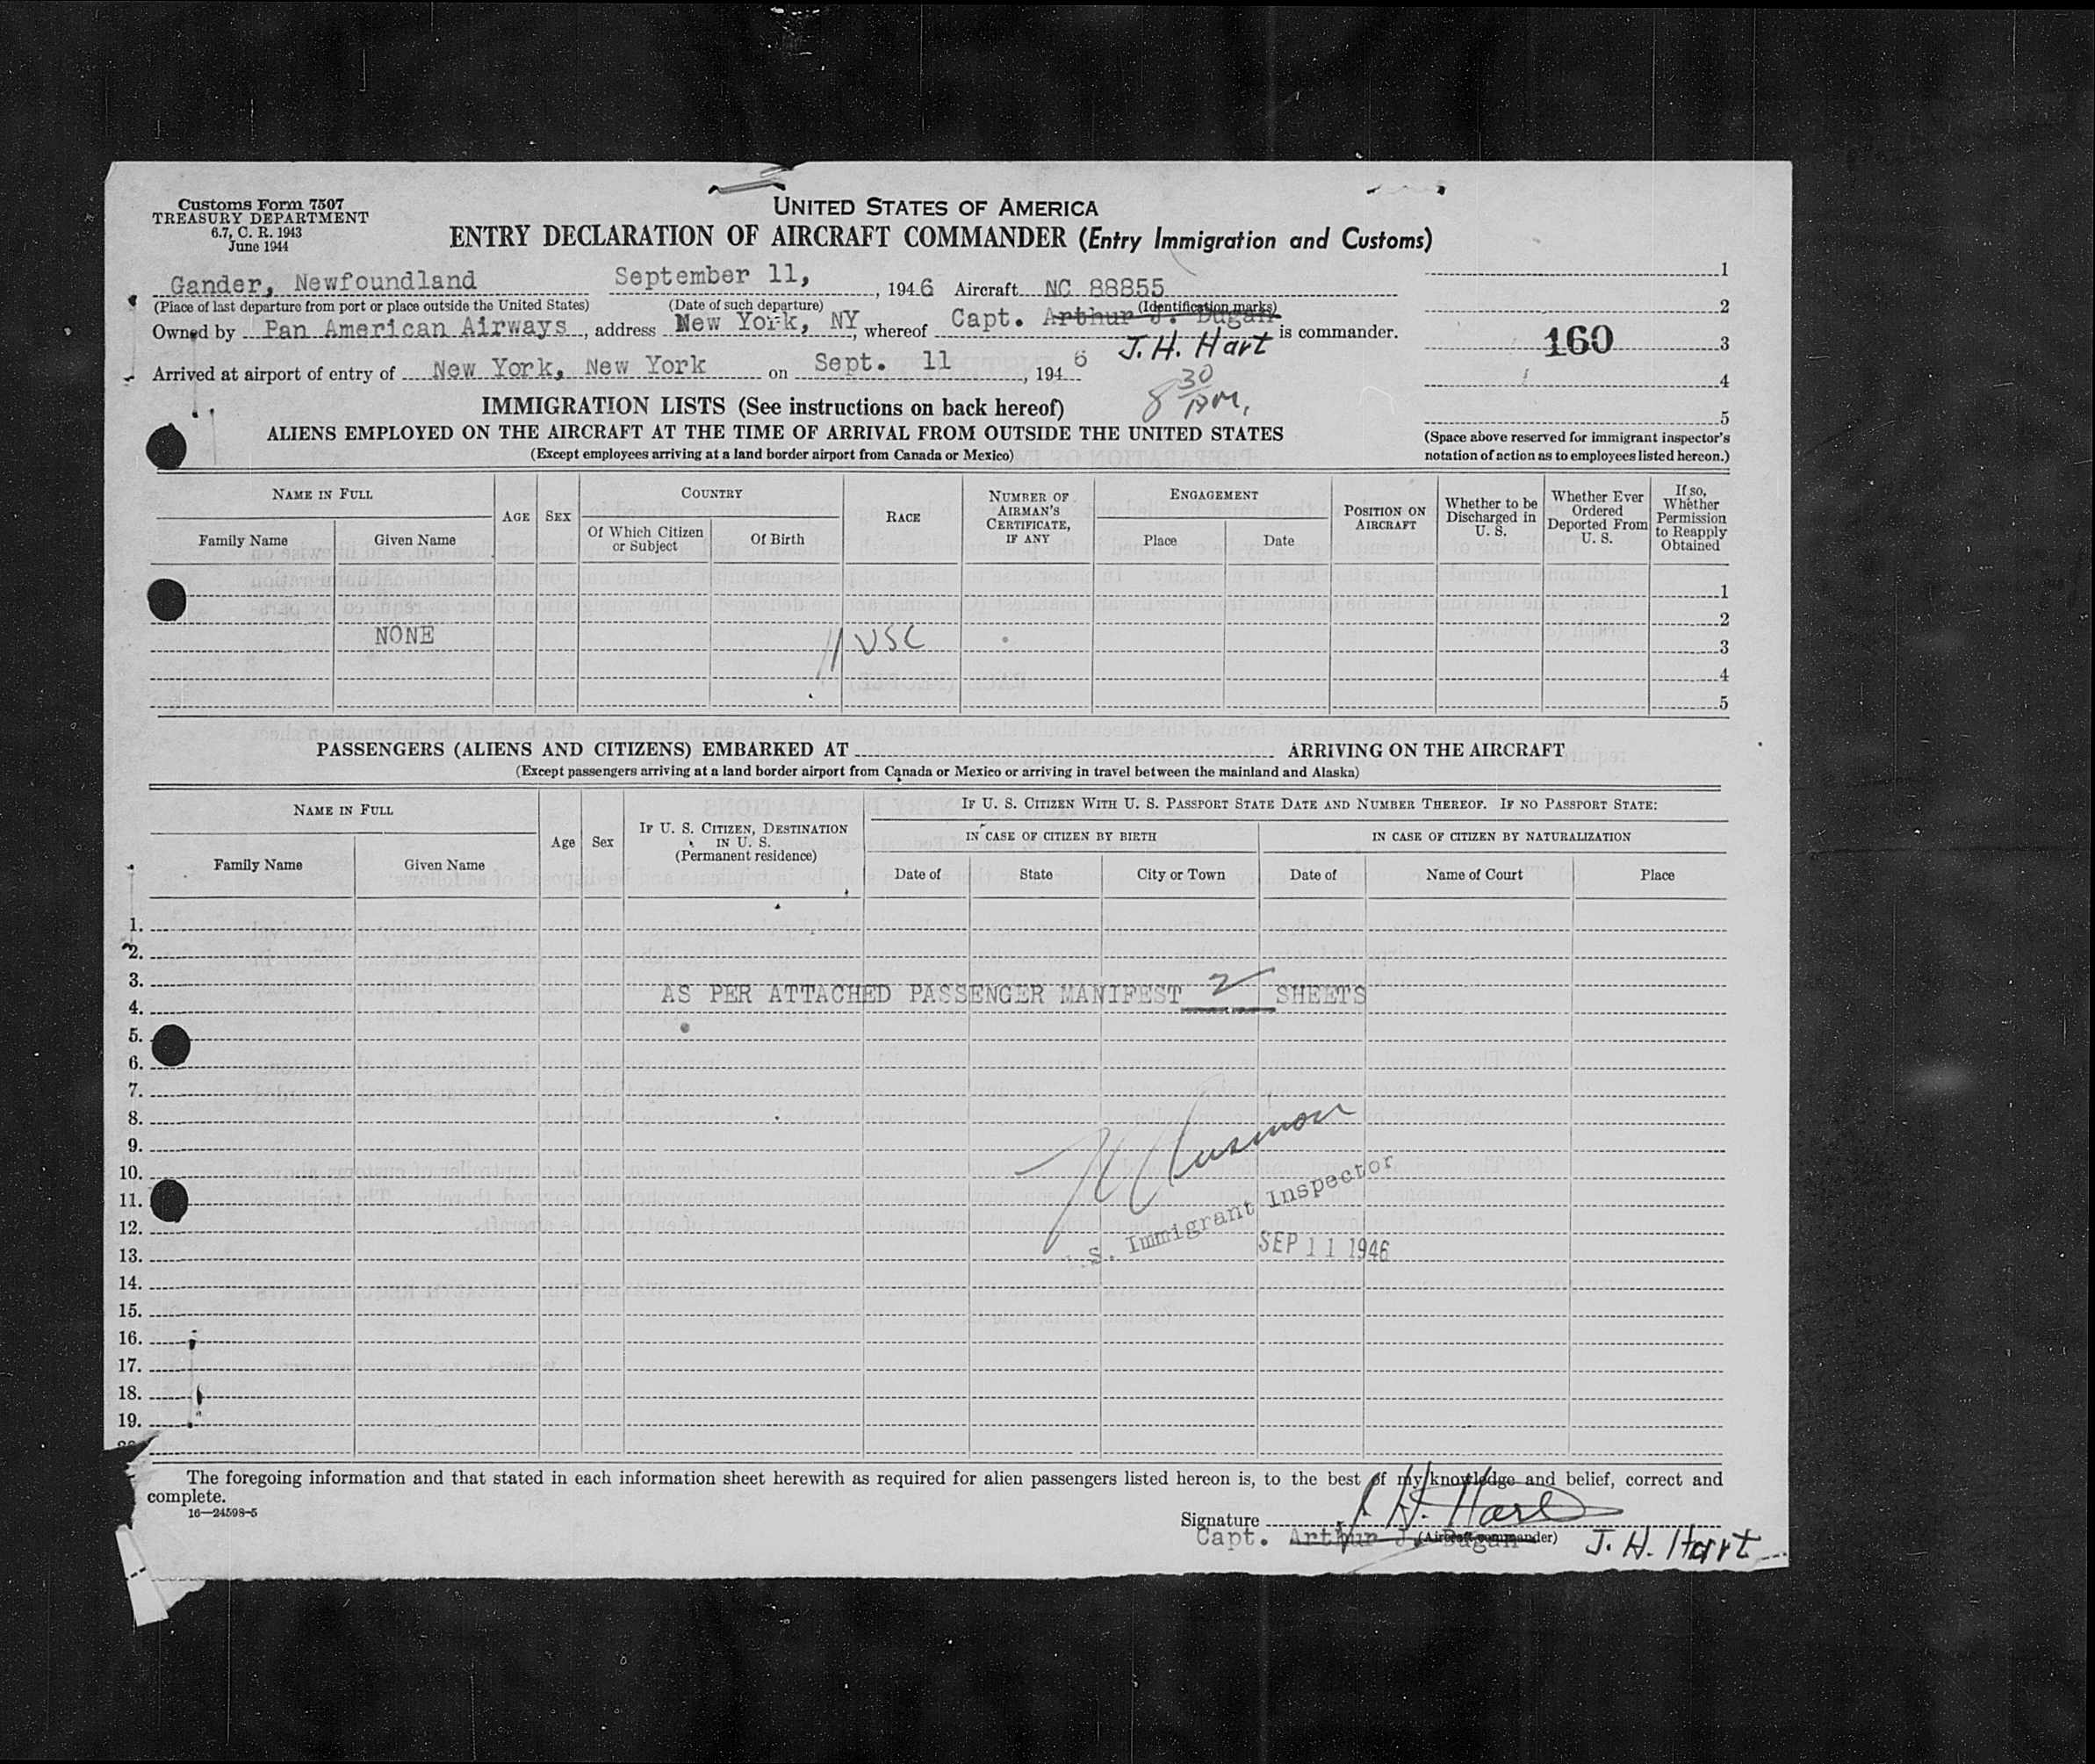 Customs Form 7507
TREASURY DEPARTMENT
6.7, C. R. 1943
June 1944
UNITED STATES OF AMERICA
ENTRY DECLARATION OF AIRCRAFT COMMANDER (Entry Immigration and Customs)
Gander, Newfoundland September 11, , 1946 Aircraft NC 88855
(Place of last departure from port or place outside the United States) (Date of such departure) (Identification marks)
Owned by Pan American Airways , address New York, NY , whereof Capt. Arthur J. Dugan is commander.
J. H. Hart
Arrived at airport of entry of New York, New York on Sept. 11 , 194 6
8 30 AM.
1
2
160 3
4
5
(Space above reserved for immigrant inspector's
notation of action as to employees listed hereon.)
IMMIGRATION LISTS (See instructions on back hereof)
ALIENS EMPLOYED ON THE AIRCRAFT AT THE TIME OF ARRIVAL FROM OUTSIDE THE UNITED STATES
(Except employees arriving at a land border airport from Canada or Mexico)
NAME IN FULL
Family Name Given Name
AGE SEX
COUNTRY
Of Which Citizen or Subject Of Birth
RACE
NUMBER OF AIRMAN'S CERTIFICATE, IF ANY
ENGAGEMENT
Place Date
POSITION ON AIRCRAFT
Whether to be Discharged in U. S.
Whether Ever Ordered Deported From U. S.
If so, Whether Permission to Reapply Obtained
1
2
NONE 11 USC 3
4
5
PASSENGERS (ALIENS AND CITIZENS) EMBARKED AT ARRIVING ON THE AIRCRAFT
(Except passengers arriving at a land border airport from Canada or Mexico or arriving in travel between the mainland and Alaska)
NAME IN FULL
Family Name Given Name
Age Sex
IF U. S. CITIZEN, DESTINATION IN U. S.
(Permanent residence)
IF U. S. CITIZEN WITH U. S. PASSPORT STATE DATE AND NUMBER THEREOF. IF NO PASSPORT STATE:
IN CASE OF CITIZEN BY BIRTH IN CASE OF CITIZEN BY NATURALIZATION
Date of State City or Town Date of Name of Court Place
1.
2.
3.
AS PER ATTACHED PASSENGER MANIFEST 2 SHEETS
4.
5.
6.
7.
8.
9.
10.
11.
12.
S. Immigrant Inspector
13.
SEP 11 1946
14.
15.
16.
17.
18.
19.
The foregoing information and that stated in each information sheet herewith as required for alien passengers listed hereon is, to the best of my knowledge and belief, correct and
complete.
16—24598-5
Signature J. H. Hart
Capt. Arthur J. Dugan (Aircraft commander) J. H. Hart